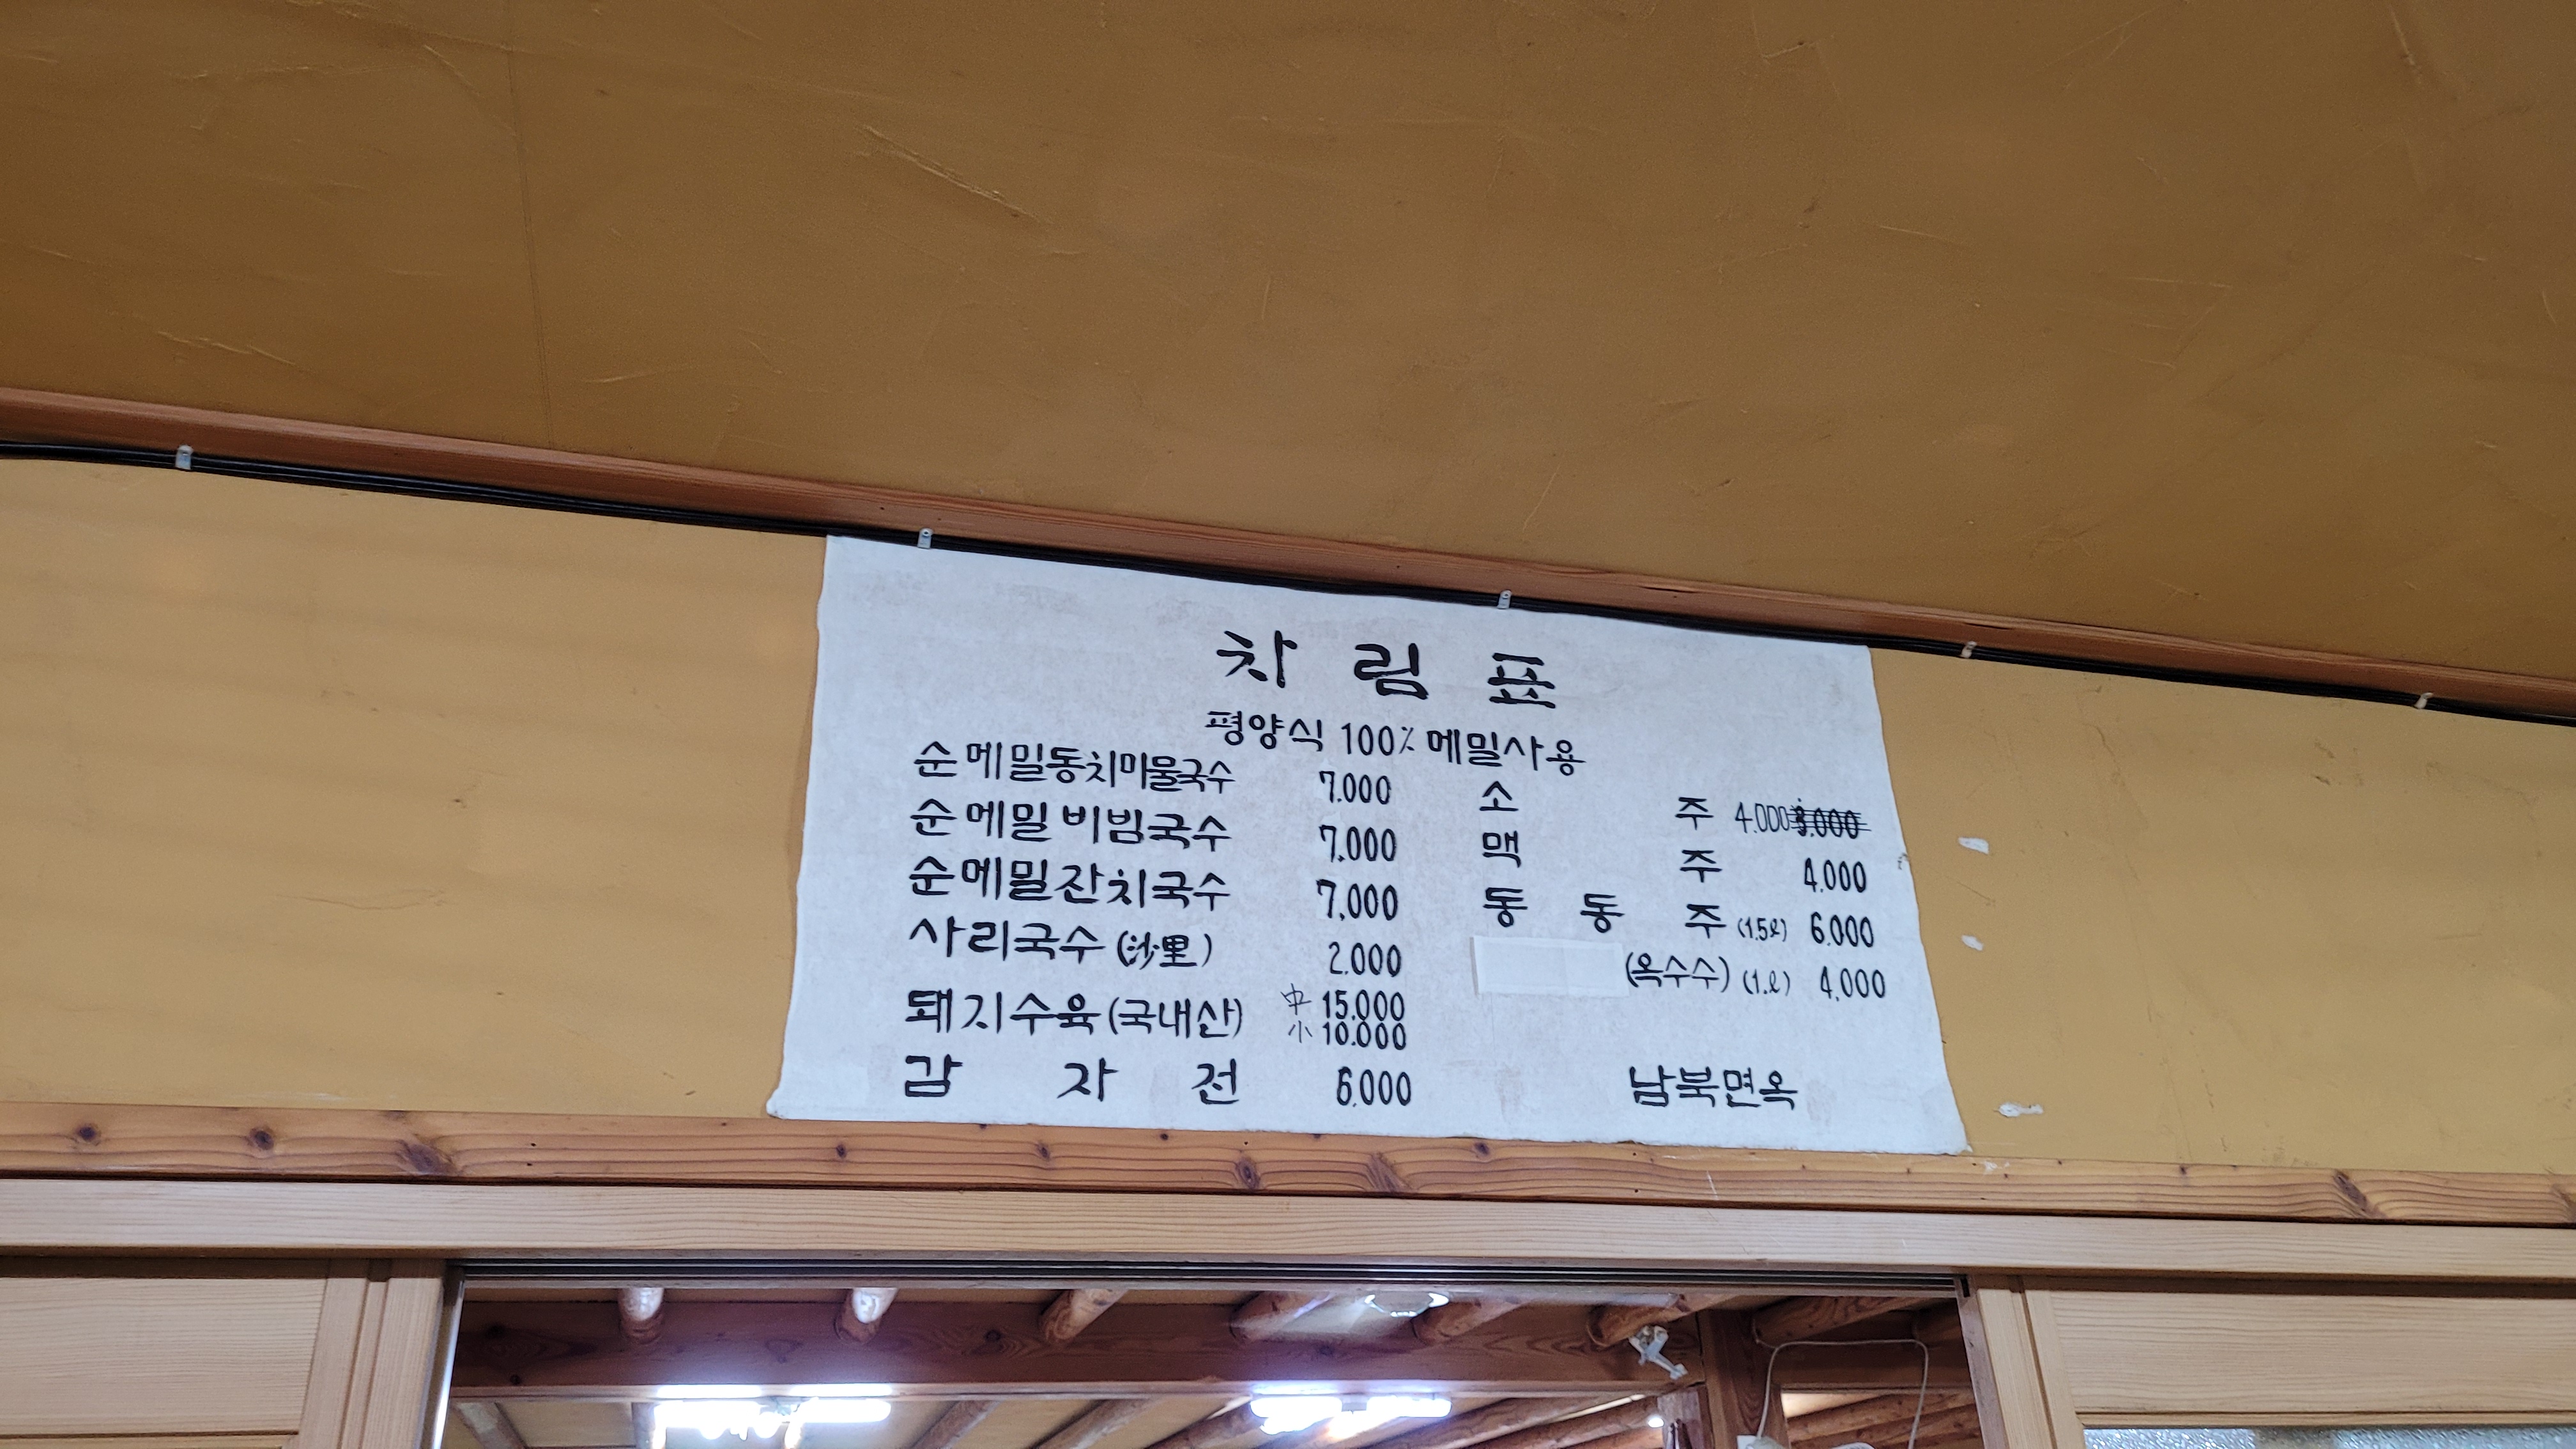 차림표
평양식 100% 메밀사용
순메밀동치미물국수 7.000
순메밀비빔국수 7.000
순메밀잔치국수 7.000
사리국수(沙里) 2.000
돼지수육(국내산) 中 15.000
小 10.000
감자전 6.000
소주 4.000 3.000
맥주 4.000
동동주 (1.5ℓ) 6.000
(옥수수) (1.ℓ) 4.000
남북면옥